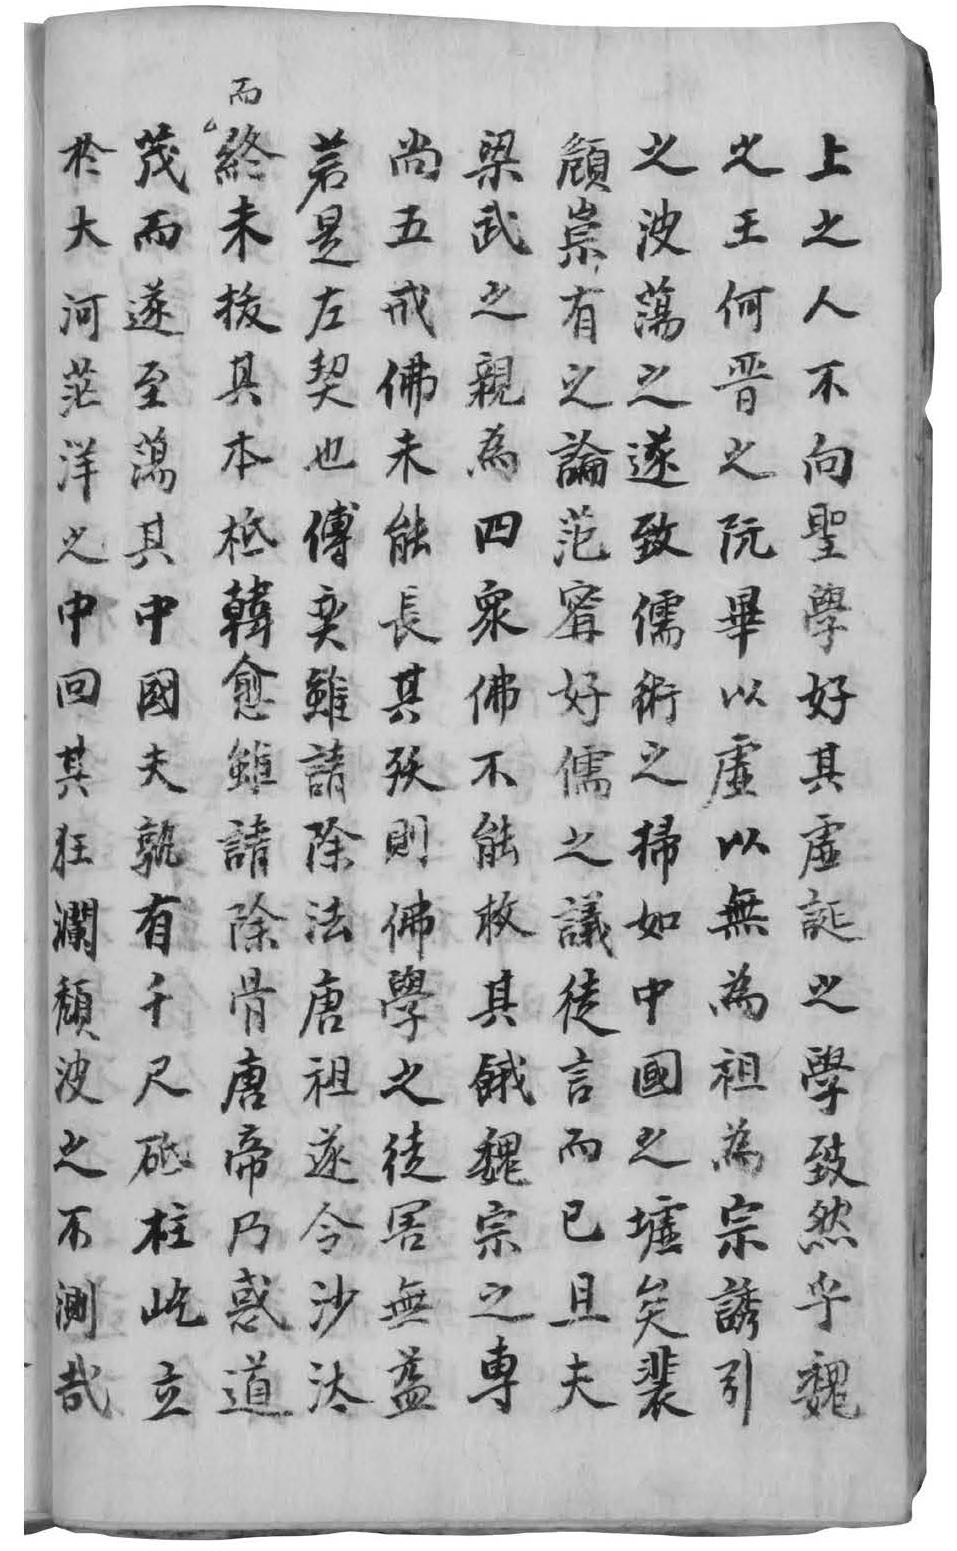 上之人不向聖學好其虛誕之學致然乎魏
之王何晋之阮畢以虛以無為祖為宗誘引
之波蕩之遂致儒術之掃如中國之墟矣裴
頠崇有之論范甯好儒之議徒言而已且夫
梁武之親為四衆佛不能救其餓魏宗之專
尚五戒佛未能長其殀則佛學之徒害無益
若是左契也傅奕雖請除法唐祖遂令沙汰
而
終未拔其本柢韓愈雖請除骨唐帝乃惑道
茂而遂至蕩其中國夫孰有千尺砥柱屹立
於大河茫洋之中回其狂瀾頹波之不測哉